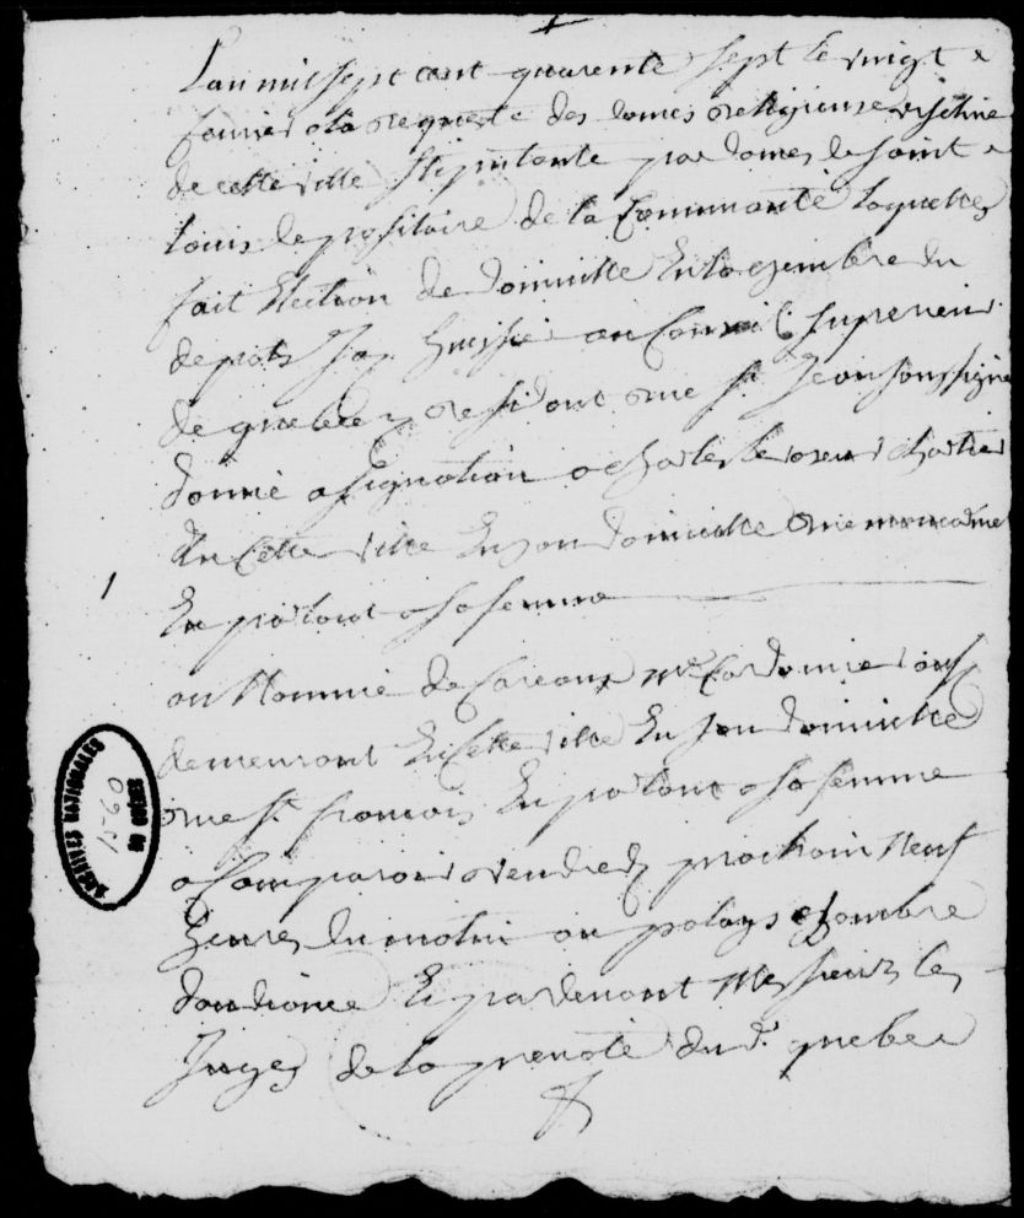 Lan mil sept cent quarente sept le vingt
Janvier a la requeste des dames religieuse urseline
de cette ville stipulante par dames de saint
louis depositaire de la Communauté laquelle
fait Election de domicille En la chambre du
depots Huissier au Conseil superieur
de quebec residant rue st Jean soussigne
donné assignation a charles chartier
En Cette ville En son domicille rue
En parlant a sa femme
au Nommé Cordonnier
demeurant En Cette ville En son domicille
rue st francois En parlant a sa femme
a Comparoir vendredy prochain Neuf
heures du matin au palays chambre
daudience Et pardevant Messieurs les
Juges de la prevoté du d. quebec
1
ARCHIVES NATIONALES
1560
DU QUÉBEC